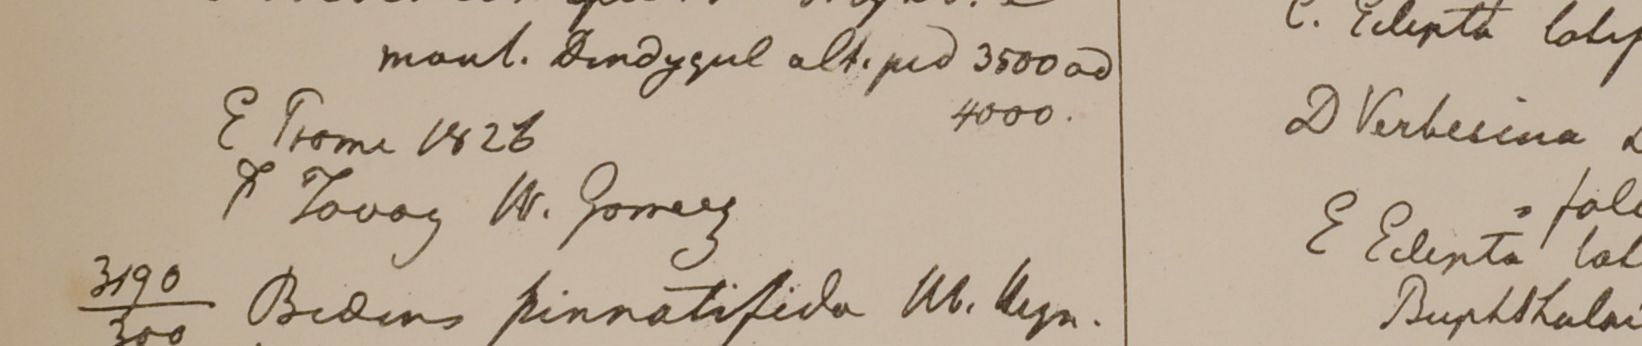 mont. Dindygul alt. ped 3500 ad
4000.
E Prome 1826
F Tavoy W. Gomez
3190
300
Bidens pinnatifida W. Herb.
C. Eclipta
D Verbesina
E Eclipta lat
Buphthalm